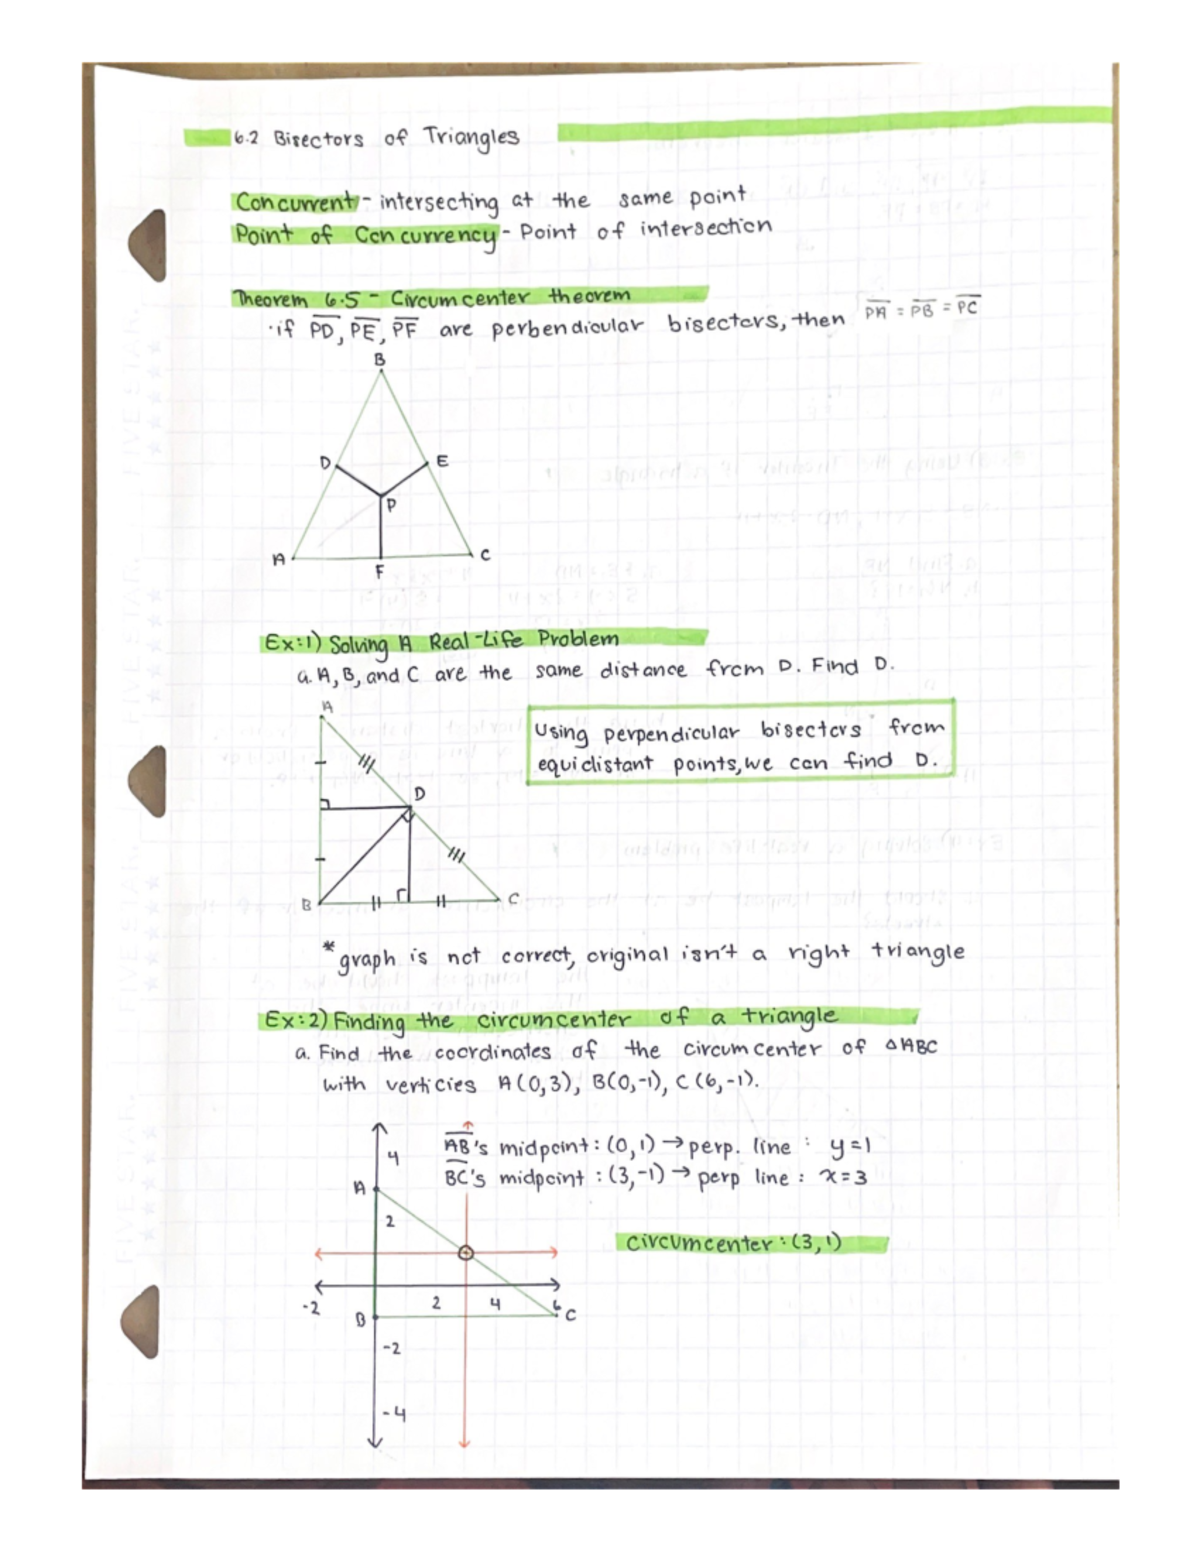 6.2 Bisectors of Triangles
Concurrent - intersecting at the same point
Point of Concurrency - Point of intersection
Theorem 6.5 - Circumcenter theorem
· if PD, PE, PF are perbendicular bisectors, then PA = PB = PC
B
D E
P
A C
F
Ex:1) Solving A Real-Life Problem
a. A, B, and C are the same distance from D. Find D.
A
Using perpendicular bisectors from
equidistant points, we can find D.
D
B C
* graph is not correct, original isn't a right triangle
Ex:2) Finding the circumcenter of a triangle
a. Find the coordinates of the circumcenter of △ABC
with verticies A(0,3), B(0,-1), C(6,-1).
AB's midpoint: (0,1) → perp. line : y=1
4
BC's midpoint : (3,-1) → perp line : x=3
A
2
circumcenter : (3,1)
-2 2 4 6
B C
-2
-4